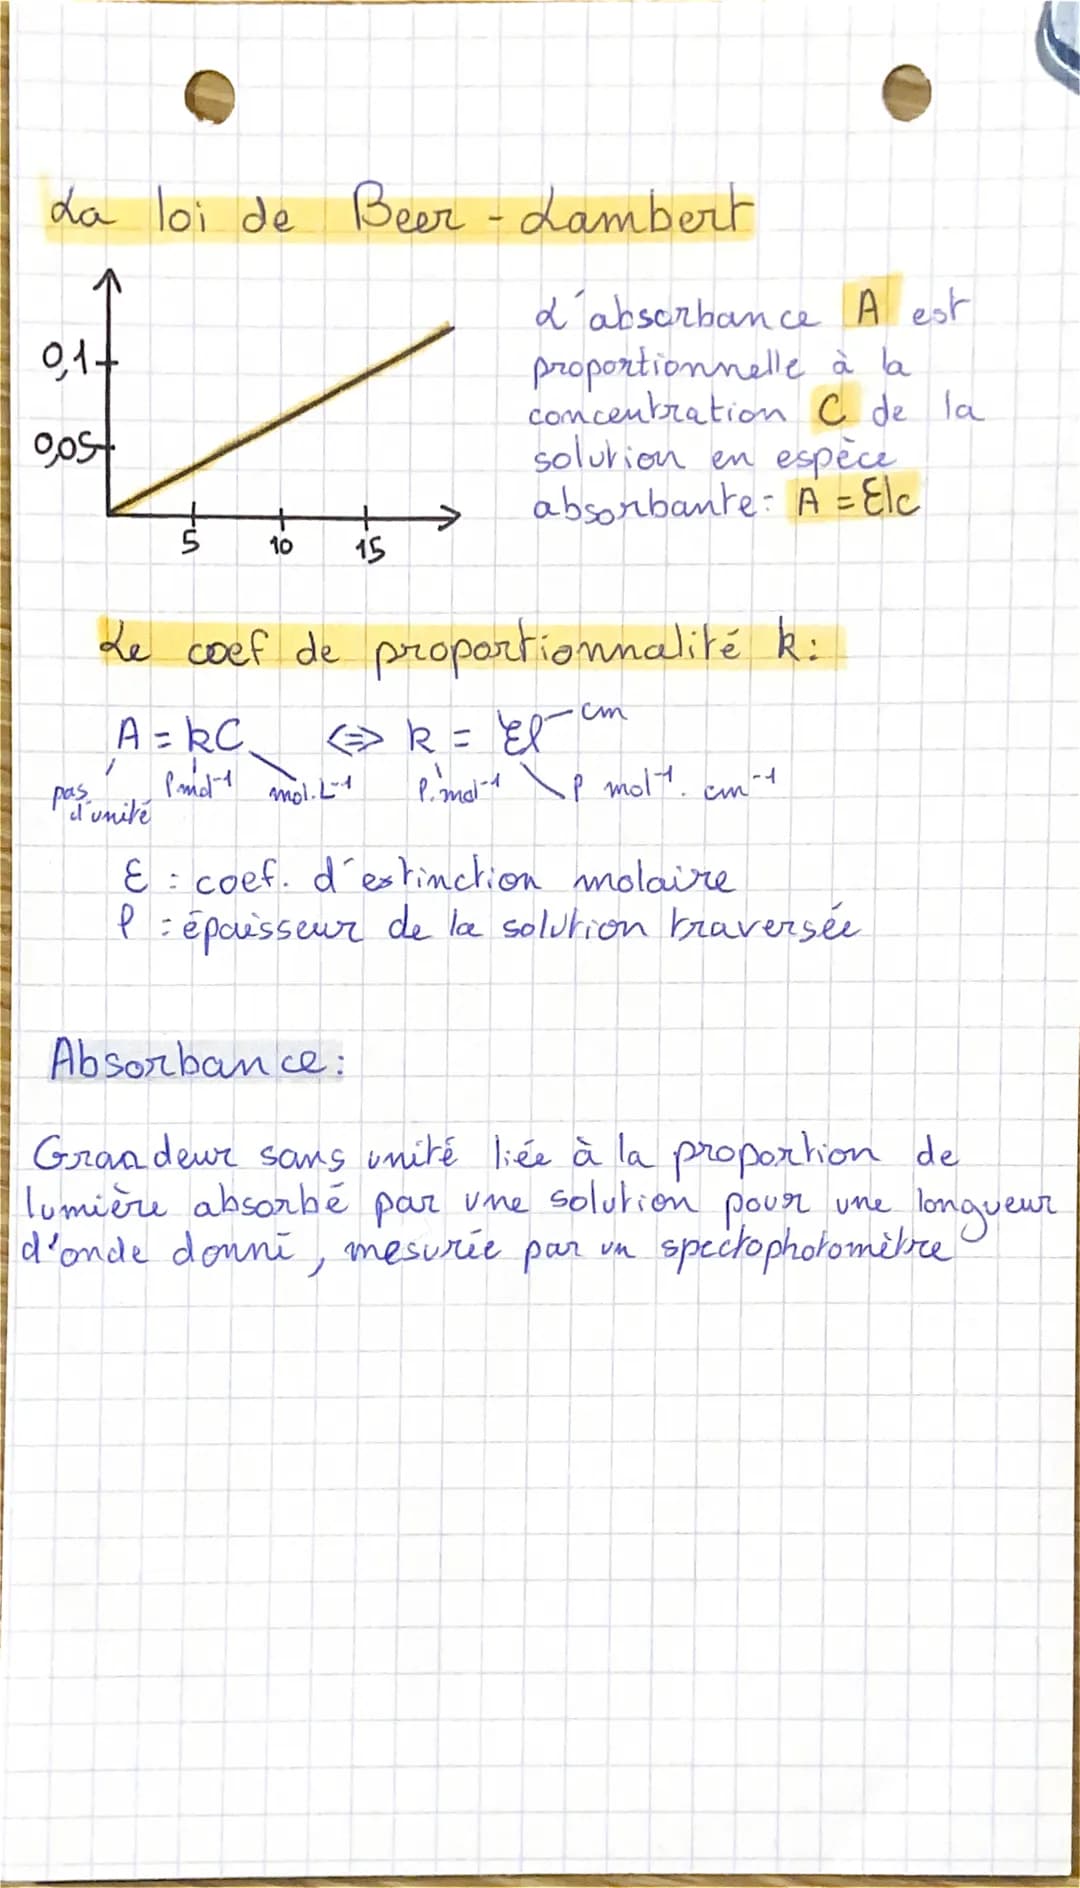 La loi de Beer-Lambert
0,1
0,05
5 10 15
L'absorbance A est
proportionnelle à la
concentration C de la
solution en espèce
absorbante: A = Ɛlc
Le coef de proportionnalité k:
A = kC ⇔ k = Ɛl cm
pas d'unité l.mol⁻¹ mol.L⁻¹ l.mol⁻¹ l mol⁻¹. cm⁻¹
Ɛ : coef. d'extinction molaire
l : épaisseur de la solution traversée
Absorbance:
Grandeur sans unité liée à la proportion de
lumière absorbé par une solution pour une longueur
d'onde donné, mesurée par un spectophotomètre